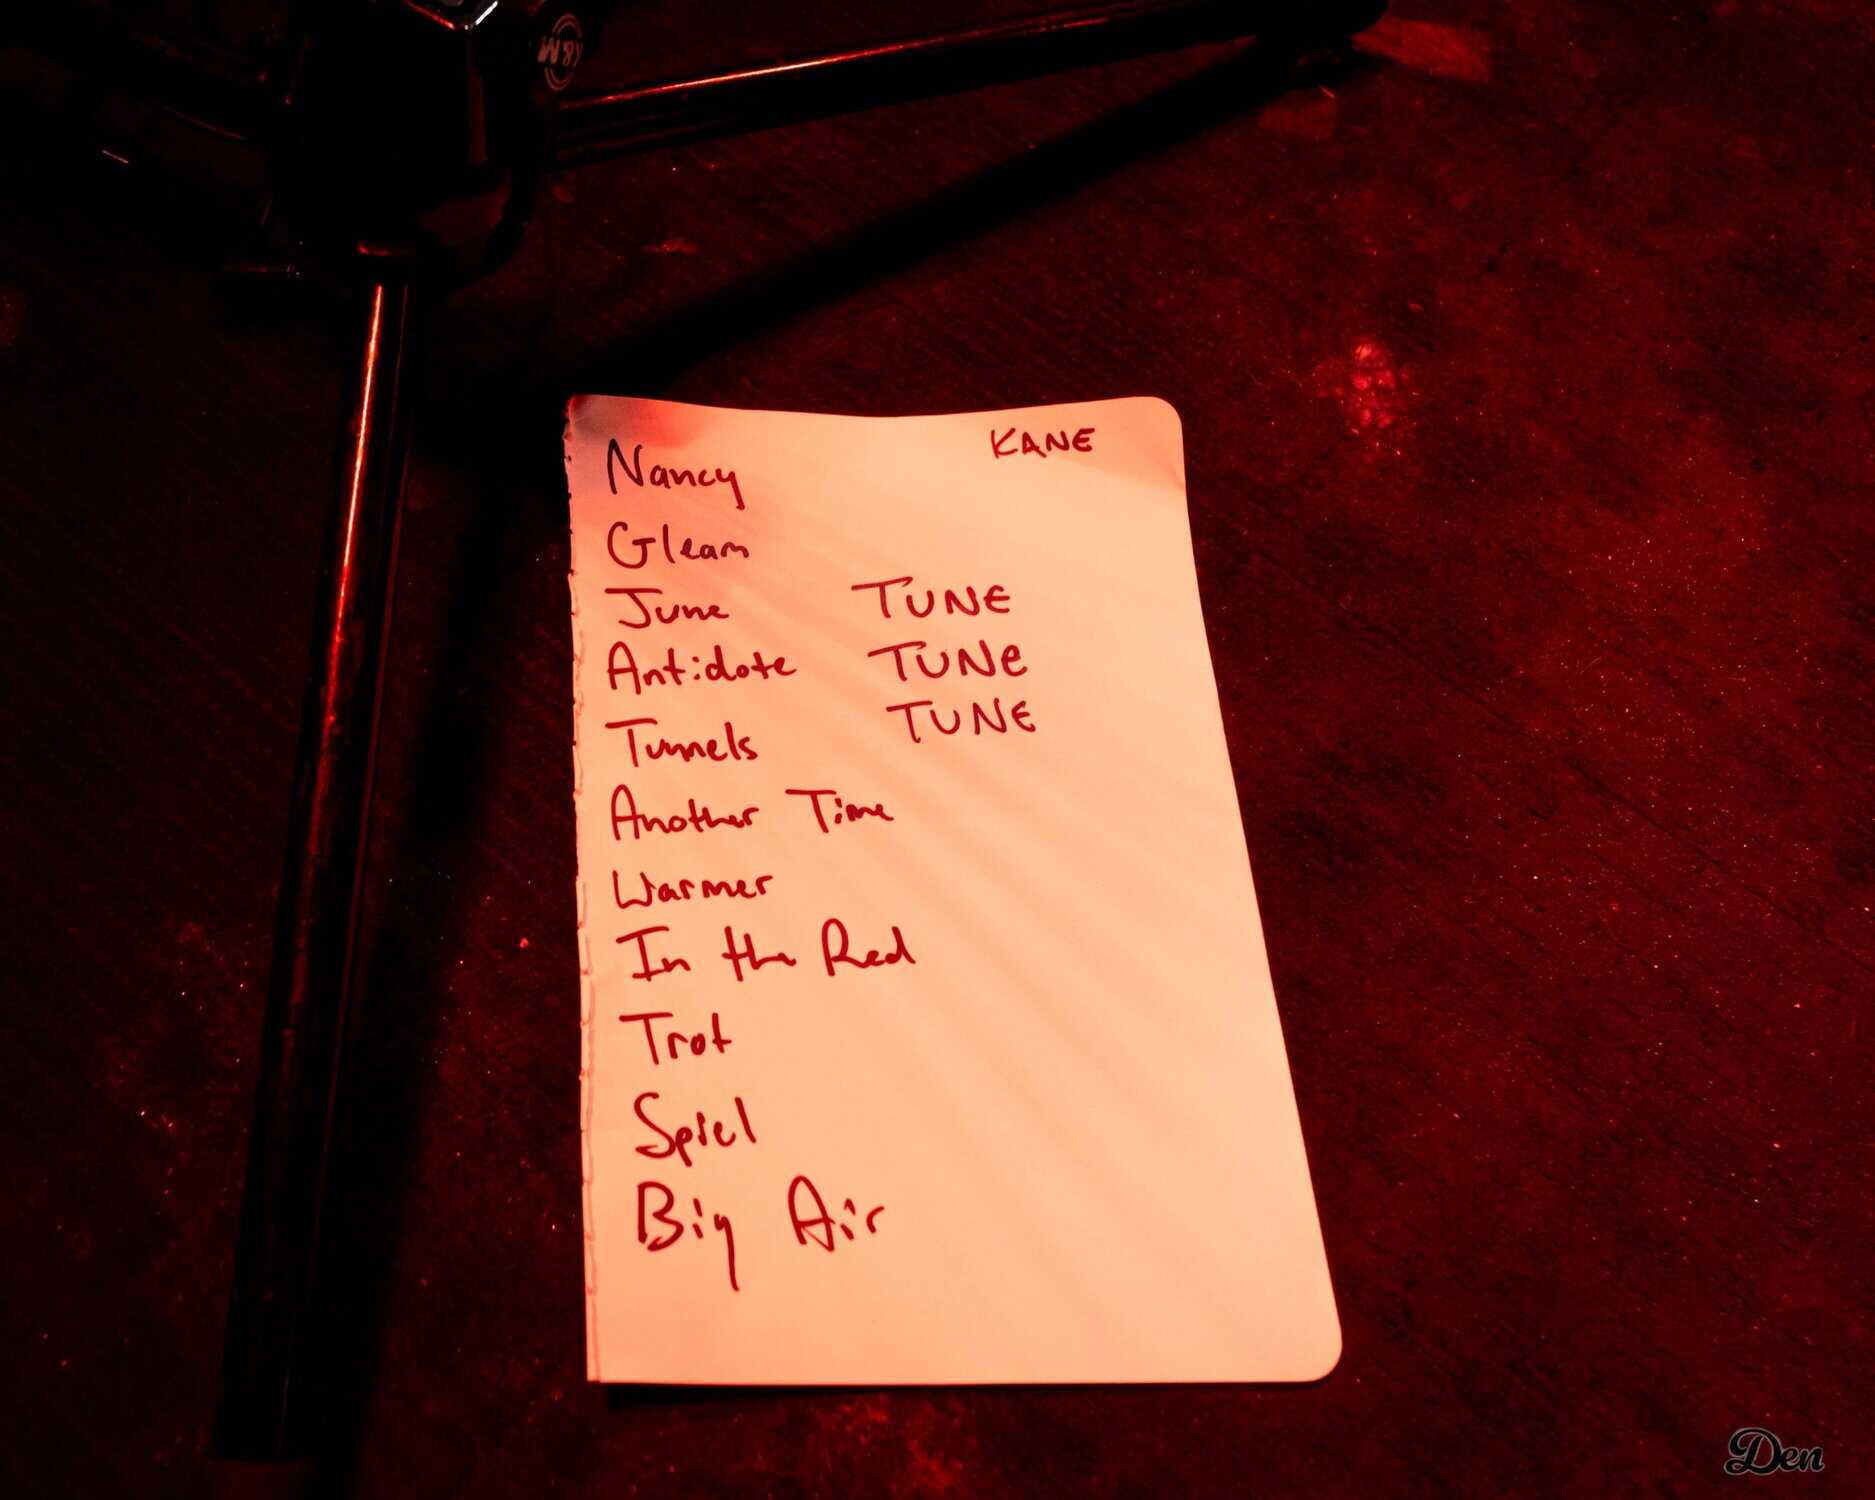 K&M
KANE
Nancy
Gleam
June TUNE
Antidote TUNE
Tunnels TUNE
Another Time
Warmer
In the Red
Trot
Spiel
Big Air
Den